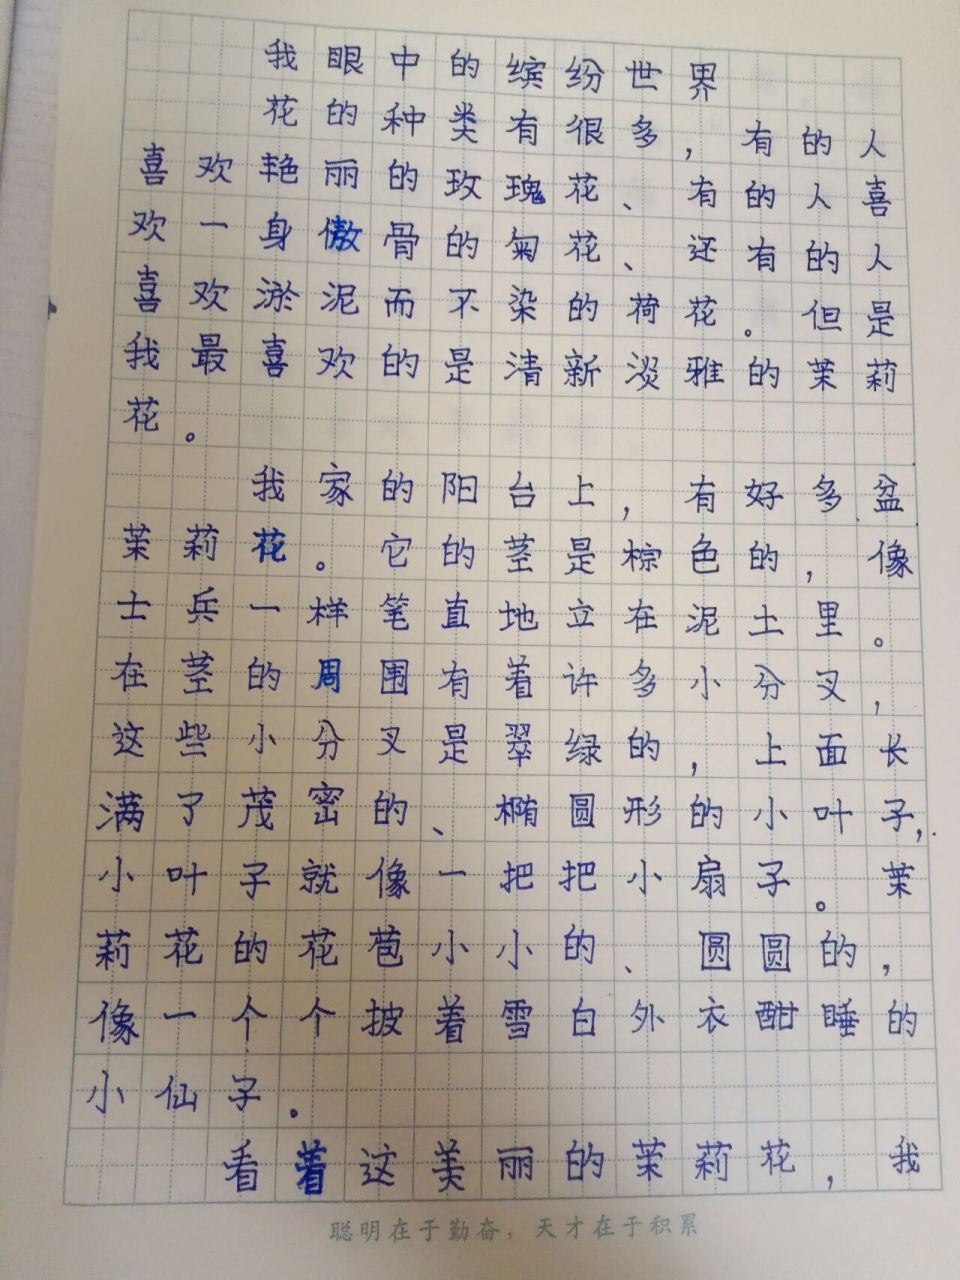 我眼中的缤纷世界
花的种类有很多，有的人
喜欢艳丽的玫瑰花、有的人喜
欢一身傲骨的菊花、还有的人
喜欢淤泥而不染的荷花。但是
我最喜欢的是清新淡雅的茉莉
花。
我家的阳台上，有好多盆
茉莉花。它的茎是棕色的，像
士兵一样笔直地立在泥土里。
在茎的周围有着许多小分叉，
这些小分叉是翠绿的，上面长
满了茂密的、椭圆形的小叶子，
小叶子就像一把把小扇子。茉
莉花的花苞小小的、圆圆的，
像一个个披着雪白外衣酣睡的
小仙子。
看着这美丽的茉莉花，我
聪明在于勤奋，天才在于积累